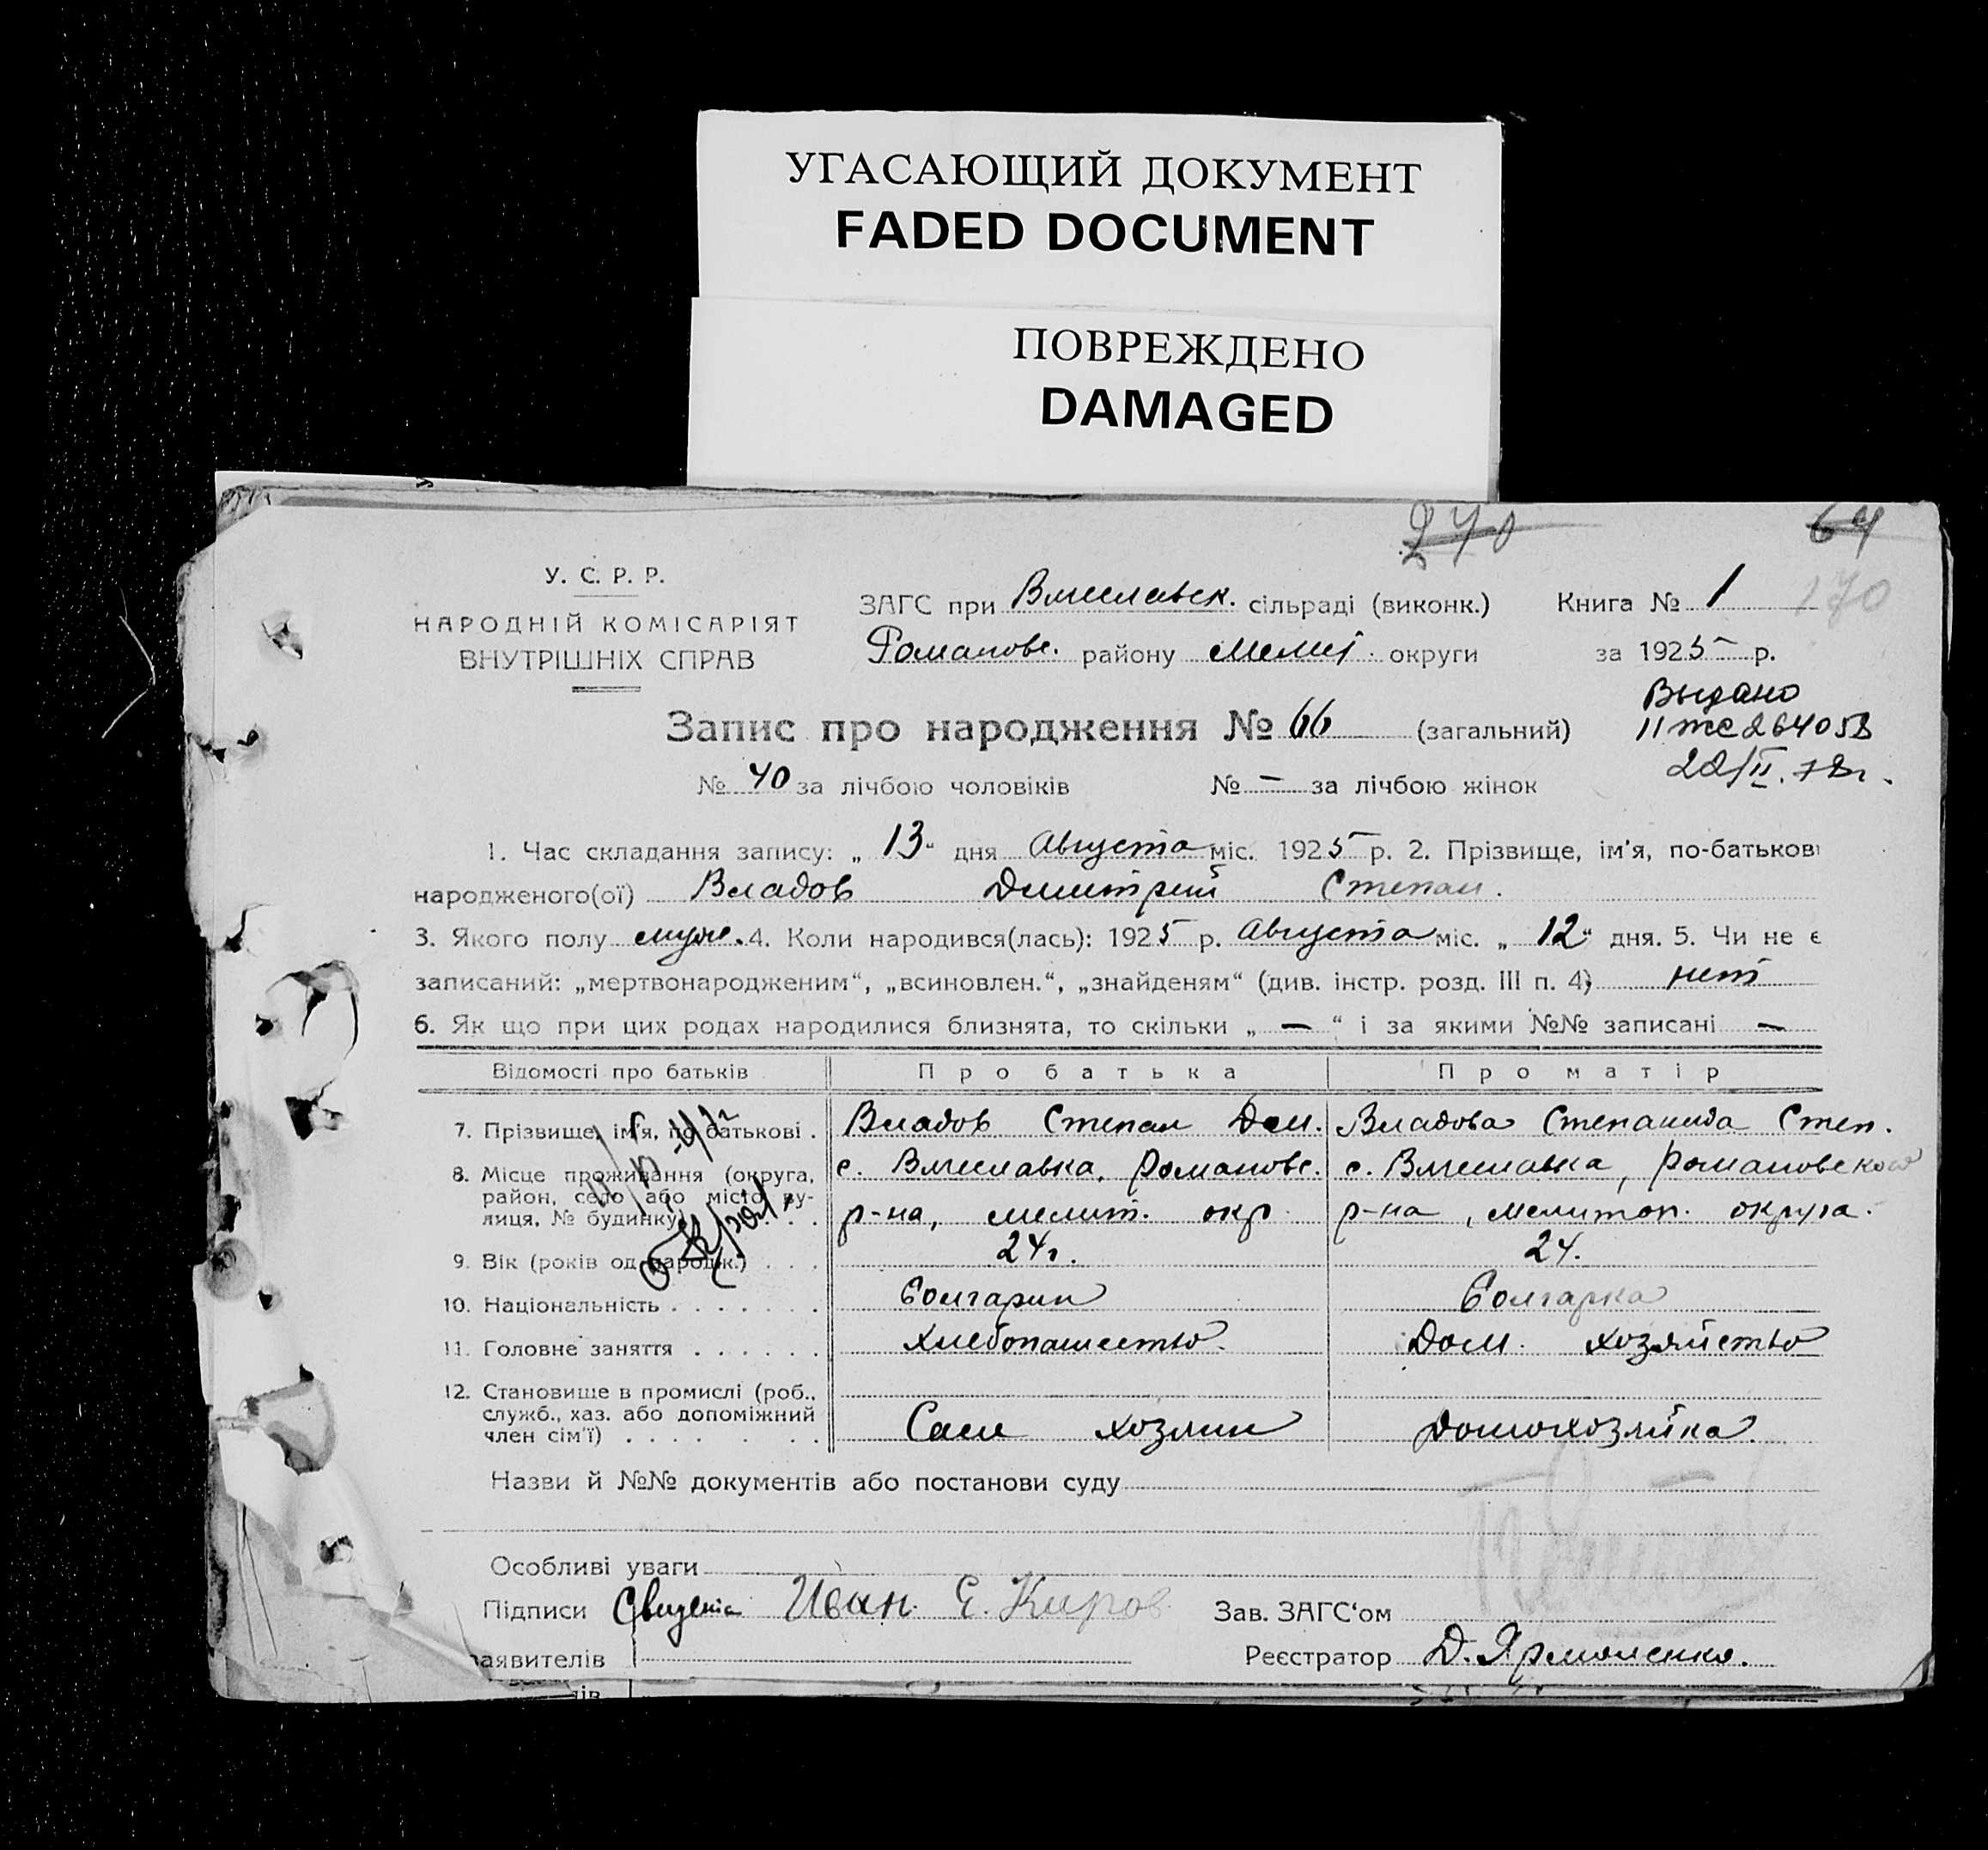 УГАСАЮЩИЙ ДОКУМЕНТ
FADED DOCUMENT
ПОВРЕЖДЕНО
DAMAGED
270
64
У. С. Р. Р.
НАРОДНІЙ КОМІСАРІЯТ
ВНУТРІШНІХ СПРАВ
ЗАГС при Вячеславск. сільраді (виконк.) Книга № 1 170
Романовс. району Мелит. округи за 1925 р.
Выдано
Запис про народження № 66 (загальний) II ЖС 264058
22/II.78г.
№ 40 за лічбою чоловіків № — за лічбою жінок
1. Час складання запису: „ 13 “ дня Августа міс. 1925 р. 2. Прізвище, ім'я, по-батькові
народженого(ої) Владов Димитрий Степан.
3. Якого полу муж. 4. Коли народився(лась): 1925 р. Августа міс. „ 12 “ дня. 5. Чи не є
записаний: „мертвонародженим“, „всиновлен.“, „знайденям“ (див. інстр. розд. III п. 4) нет
6. Як що при цих родах народилися близнята, то скільки „ — “ і за якими №№ записані —
Відомості про батьків Про батька Про матір
7. Прізвище, ім'я, по батькові . Владов Степан Дем. Владова Степанида Степ.
8. Місце проживання (округа, с. Вячеславка, Романовс. с. Вячеславка, Романовского
район, село або місто, ву-
лиця, № будинку) . . . р-на, мелит. окр. р-на, мелитоп. округа.
9. Вік (років од народж.) . . . 24г. 24.
10. Національність . . . . . . . Болгарин Болгарка
11. Головне заняття . . . . . . Хлебопашество. Дом. хозяйство
12. Становище в промислі (роб.,
служб., хаз. або допоміжний
член сім'ї) . . . . . . . Сам хозяин Домохозяйка.
Назви й №№ документів або постанови суду
Особливі уваги
Підписи Иван Е. Киров Зав. ЗАГС‘ом
заявителів Реєстратор Д. Ярмоленко.